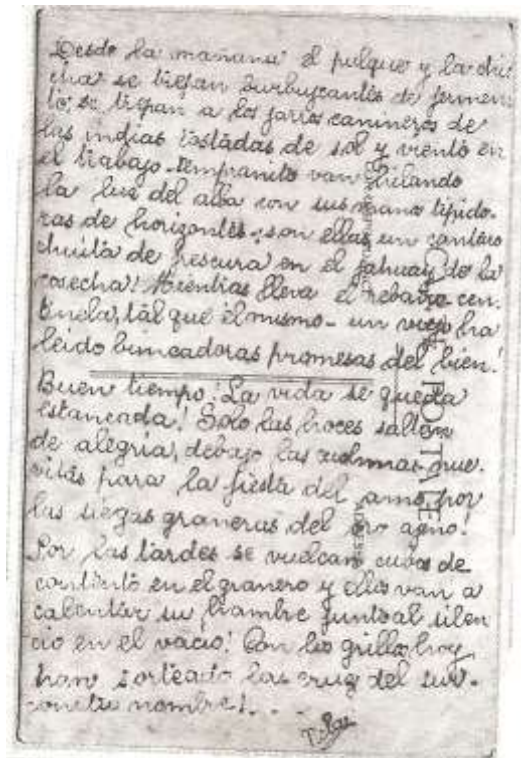 Desde la mañana el pulque y la chi
cha se trepan burbujeantes de fermen
to, se trepan a los jarros camineros de
las indias tostadas de sol y viento en
el trabajo. tempranito van hilando
la luz del alba con sus manos tejedo.
ras de horizontes; son ellas un cantaro
de frescura en el jahuay de la
cosecha! Mientras lleva el rebaño cen.
tinela, tál que el mismo - un viejo ha
leido brincadoras promesas del bien!
Buen tiempo! La vida se queda
estancada! Solo las hoces saltan
de alegria, debajo las nue.
vitas para la fiesta del amo, por
las siegas graneras del oro ageno!
Por las tardes se vuelcan cubos de
contento en el granero y ellas van a
calentar su hambre junto al silen
cio en el vacio! Con los grillos hoy
han sorteado las cruz del sur.
con tu nombre! . . .
POSTALE